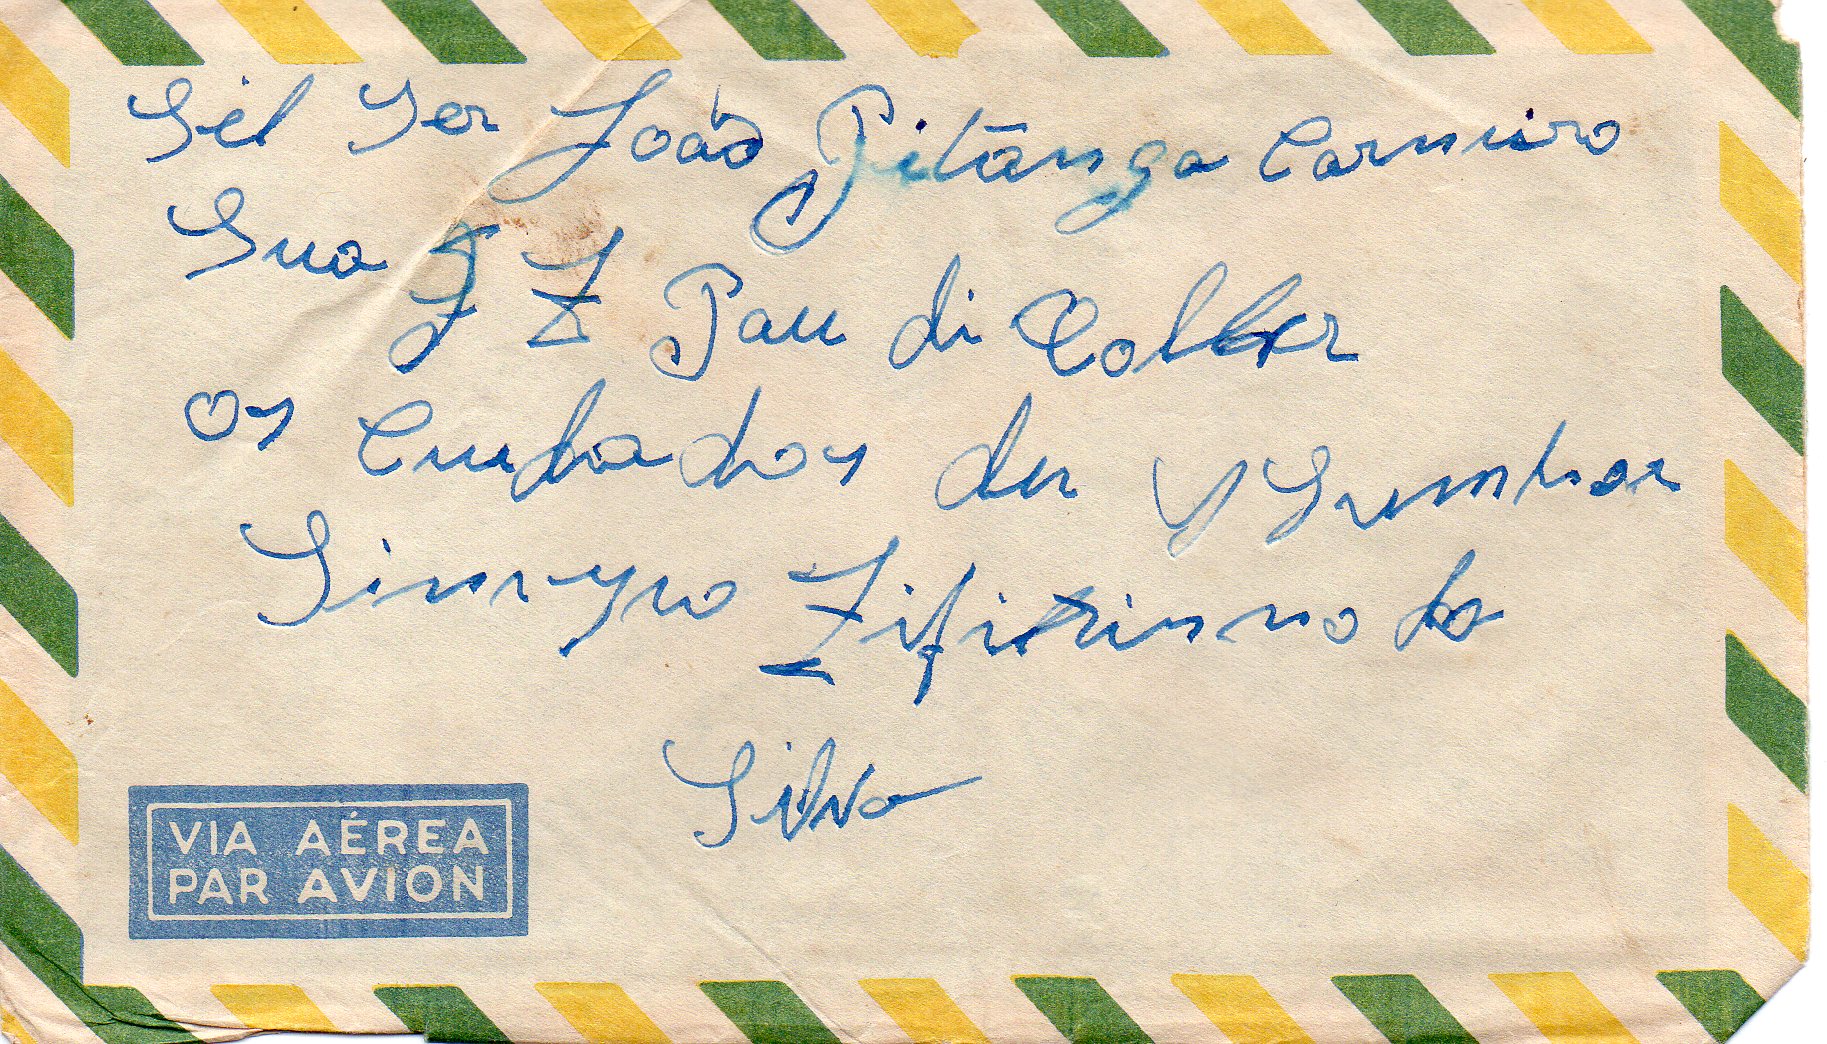 Sél Ser João Pitanga Carneiro
Sua F Z Pau di Colher
os Cuidados du Senhor
Zifirinno da
Silva
VIA AÉREA
PAR AVION